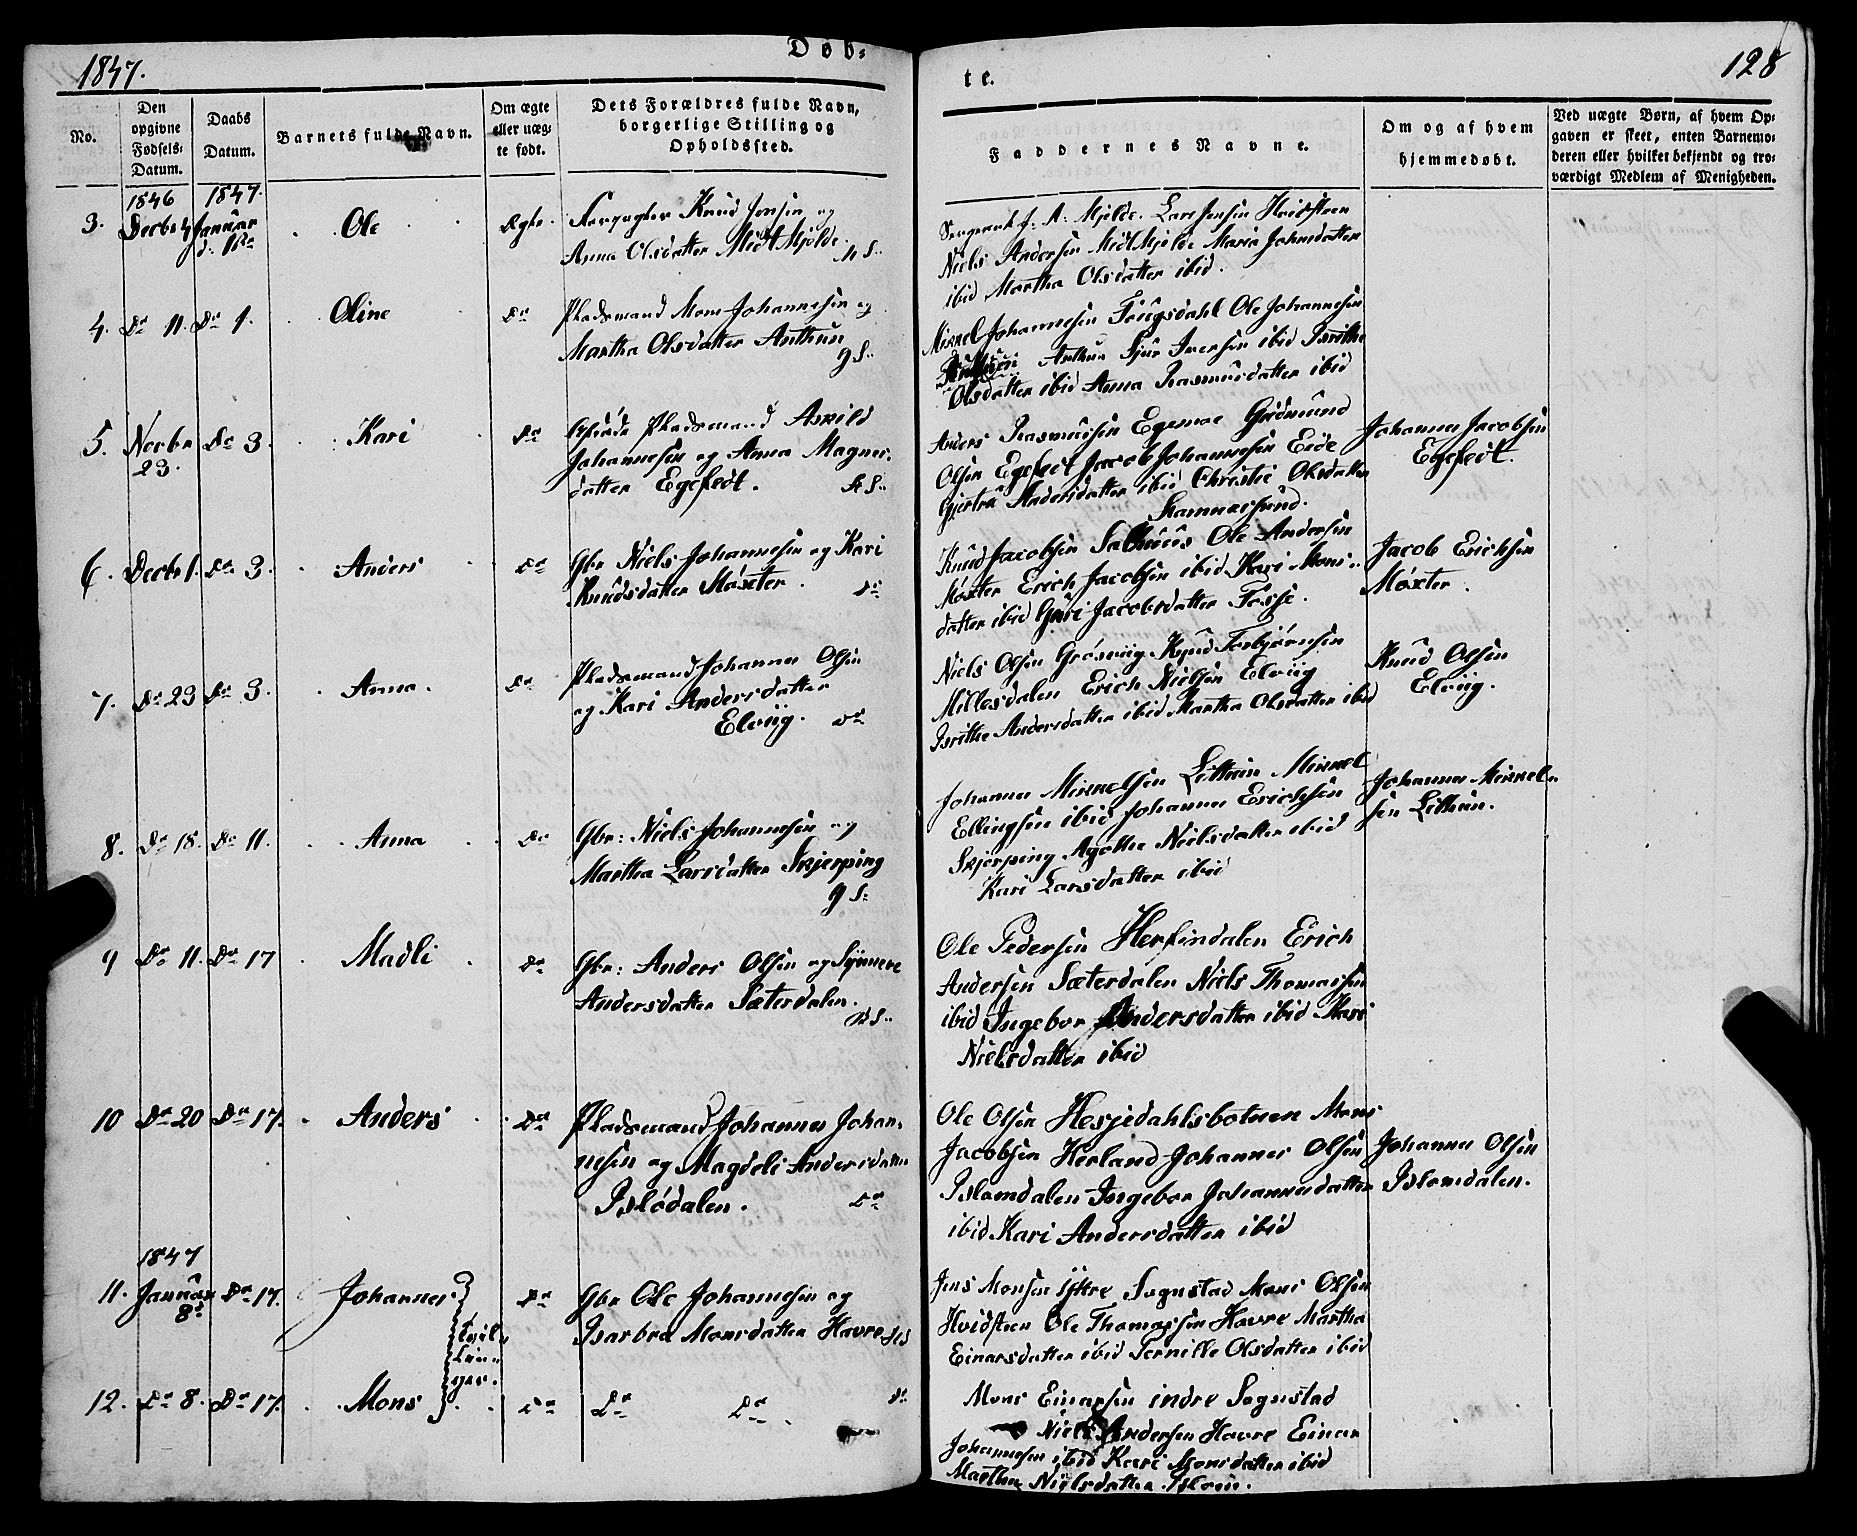 1847.
Døb-
te.
128
No.
Den opgivne Fødsels-Datum.
Daabs Datum.
Barnets fulde Navn.
Om ægte eller uægte født.
Dets Forældres fulde Navn, borgerlige Stilling og Opholdssted.
Faddernes Navne.
Om og af hvem hjemmedøbt.
Ved uægte Børn, af hvem Opgaven er skeet, enten Barnemoderen eller hvilket bekjendt og troværdigt Medlem af Menigheden.
1846
1847.
3.
Decbr 4
Januar
Ole
Ægte
Knud Jensen og
Anna Olsdatter Midt Mjelde.
Sergeant J. A. Mjelde. Lars Jensen Hvidsteen
Niels Andersen Midt Mjelde Maria Johnsdatter
ibid Martha Olsdatter ibid.
4. Do 11. Do 1.
Oline
Do
Pladsmand Mons Johannesen og
Martha Olsdatter Anthun
Mikkel Johannesen Ole Johannesen
Anthun Sjur Iversen ibid Brithe
Olsdatter ibid Anna Rasmusdatter ibid
5. Novbr
23.
Do 3.
Kari
Do
Pladsmand Askild
Johannesen og Anna Magnes-
datter Egefedt.
Anders Rasmussen Gudmund
Olsen Egefedt Jacob Johannesen Eide
Gjertru Andersdatter ibid Christie Olsdatter
Hammersund.
Johannes Jacobsen
Egefedt.
6. Decbr 1. Do 3.
Anders
Do
Gbr Niels Johannesen og Kari
Knudsdatter Møxter.
Do
Knud Jacobsen Salhuus Ole Andersen
Møxter Erich Jacobsen ibid Kari Mons-
datter ibid Guri Jacobsdatter Fosse.
Jacob Erichsen
Møxter.
7. Do 23 Do 3.
Anna.
Do
Pladsmand Johannes Olsen
og Kari Andersdatter
Elviig. Do
Niels Olsen Grøsviig Knud Torbjørnsen
Millesdalen Erich Nielsen Elviig
Brithe Andersdatter ibid Martha Olsdatter ibid
Knud Olsen
Elviig.
8. Do 18. Do 11.
Anna
Do
Gbr: Niels Johannesen og
Martha Larsdatter Skjerping
Johannes Mikkelsen Lithun Mikkel
Ellingsen ibid Johannes Erichsen
Skjerping Agathe Nielsdatter ibid
Kari Larsdatter ibid
Johannes Mikkel-
sen Lithun.
9 Do 11. Do 17
Madli
Do
Gbr: Anders Olsen og Synneve
Andersdatter Sæterdalen.
Ole Pedersen Herfindalen Erich
Andersen Sæterdalen Niels Thomassen
ibid Ingebor Andersdatter ibid Kari
Nielsdatter ibid
10 Do 20 Do 17.
Anders
Do
Pladsmand Johannes Johan-
nesen og Magdeli Andersdatter
Do
Ole Olsen Hesjedahlsbotnen Mons
Jacobsen Herland Johannes Olsen
Bslomdalen Ingebor Johannesdatter
ibid Kari Andersdatter ibid
Johannes Olsen
Bslomdalen.
1847
11. Januar
8de
Do 17.
Johannes
Tvil-
lin-
ger.
Do
Gbr Ole Johannesen og
Barbra Monsdatter Havre
Jens Monsen Ytre Sognstad Mons Olsen
Hvidsteen Ole Thomassen Havre Martha
Einarsdatter ibid Pernille Olsdatter ibid
12. Do 8. Do 17.
Mons
Do
Do Do
Do
Mons Einarsen indre Sognstad
Niels Andersen Havre Einar
Johannesen ibid Kari Monsdatter ibid
Martha Nielsdatter